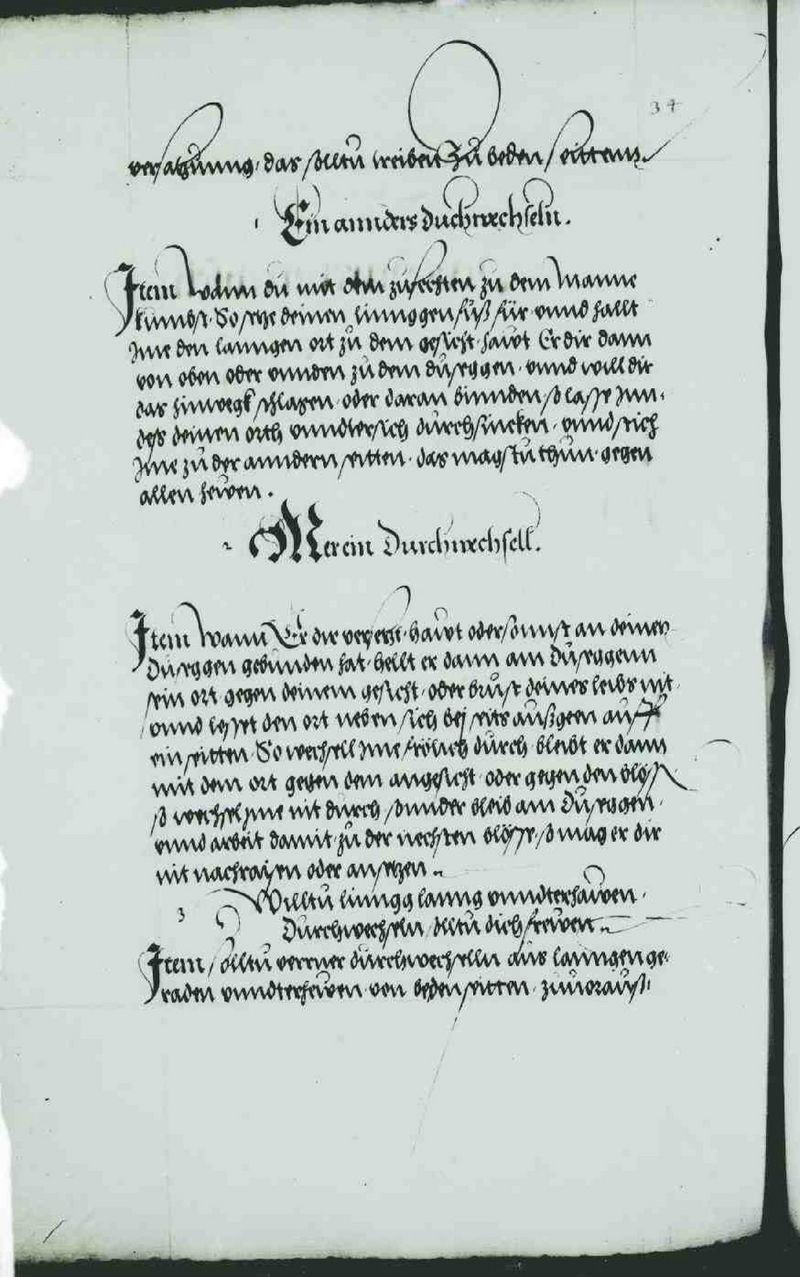 34
versatzunng, das solltu treiben Zu beden seittenn.
1 Ein annders duchwechseln.
Item Wann du mit dem zufechten zu dem Manne
kumbst, So setze deinen linnggen fuß für vnnd hallt
Ime den lanngen ort zu dem gesicht, hawt Er dir dann
von oben oder vnnden zu dem duseggen, vnnd will dir
das hinwegk schlagen, oder daran binnden, so lasse Inn,
des deinen orth vnndtersich durchsincken, vnnd stich
Ime zu der anndern seitten, das magstu thun, gegen
allen hewen.
2 Mer ein Durchwechsell.
Item Wann Er dir versetzt, hawt oder sonnst an deinen
Duseggen gebunden hat, hellt er dann am Duseggenn
sein ort gegen deinem gesicht, oder brust deines leibs nit,
vnnd lesset den ort neben sich bej seits außgeen auff
ein seitten So wechsell Ime frölich durch, bleibt er dann
mit dem ort gegen dem angesicht, oder gegen den blöss
so wechsel Ime nit durch, sunder bleib am Duseggen,
vnnd arbeit damit, zu der nechsten blösse, so mag er dir
nit nachraisen oder ansetzen.
3 Willtu linngg lanng vnndterhawen,
Durchwechseln solltu dich frewen.
Item solltu verrner durchwechselln aus lanngen ge,
raden vnndterhewen, von beden seitten, zuvoraus,